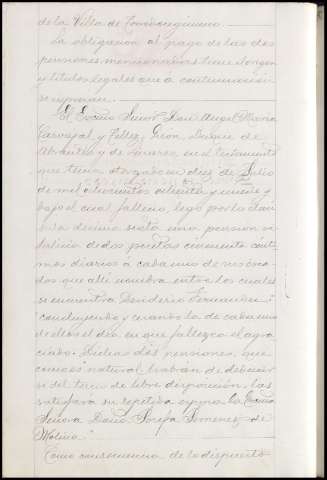 de la Villa de Torrdongimeno
La obligacion al pago de las dos
pensiones mencionadas tiene su origen
y titulos legales que á continuacion
se expresan.
El Excmo Señor Don Angel Maria
Carvajal y Tellez Giron, Duque de
Abrantes y de Linares, en el testamento
que tenia otorgado en diez de Julio
de mil ochocientos ochenta y nueve y
bajo el cual falleció, legó por la cláu-
sula decima sexta una pension vi-
talicia de dos pesetas cincuenta cénti-
mos diarios á cada uno de sus cria-
dos que allí nombra entre los cuales
se encuentra Desiderio Fernandez
"concluyendo y cesando la de cada uno
de ellos el dia en que fallezca el agra-
ciado. Dichas dos pensiones, que
como es natural habrán de deducir-
se del tercio de libre disposicion, las
satisfará su repetida esposa la Excma
Señora Doña Josefa Jimenez de
Molina"
Como consecuencia de lo dispuesto